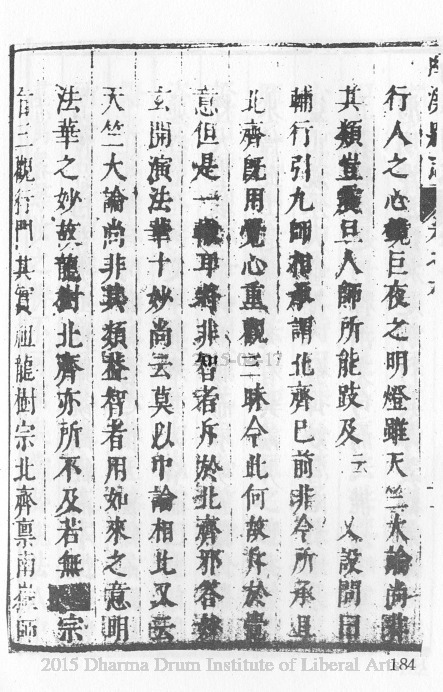 行人之心鏡巨夜之明燈雖天竺大論尚非
其類豈震旦人師所能跂及云 又設問曰
輔行引九師相承謂北齊已前非今所承且
北齊既用覺心重觀三昧今此何故斥於
意但是一轍耳將非智者斥於北齊邪答妙
玄開演法華十妙尚云莫以中論相比又云
天竺大論尚非其類蓋智者用如來之意明
法華之妙故龍樹北齊亦所不及若無宗
三觀行門其實祖龍樹宗北齊稟南嶽師
184
2015 Dharma Drum Institute of Liberal Arts